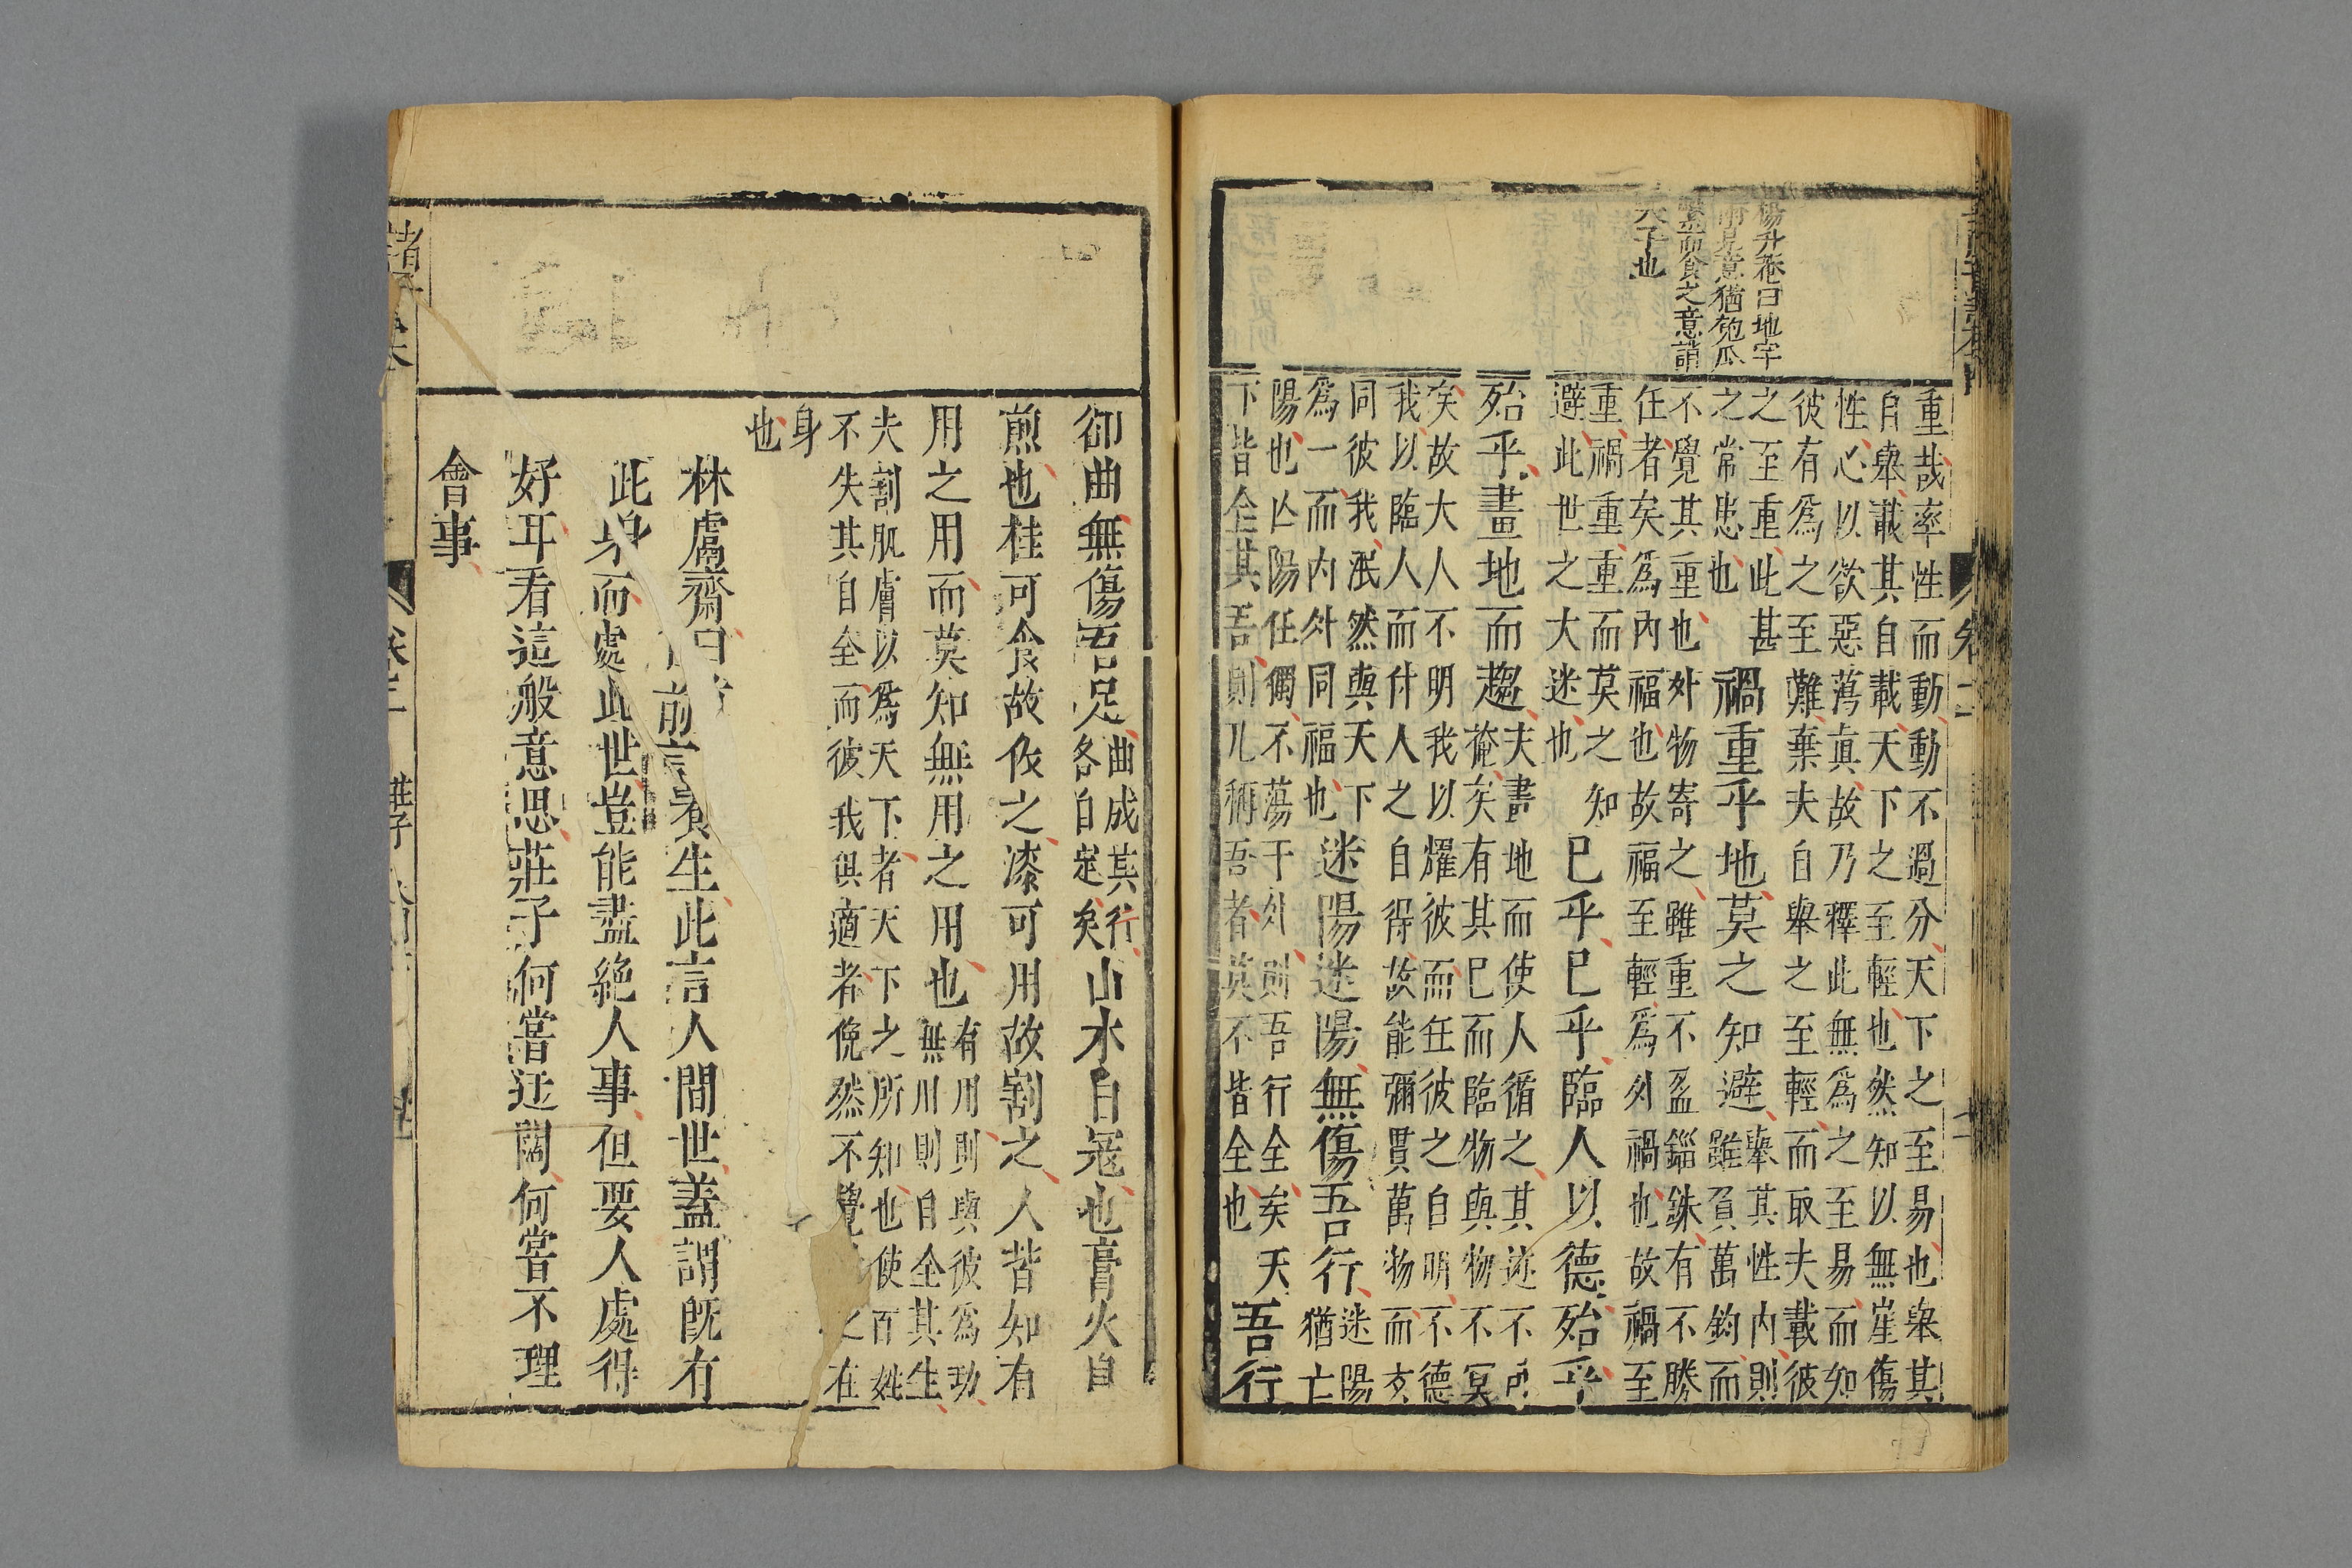 楊升菴曰地字
意猶匏瓜
而食之意誚
夫子也
重哉率性而動動不過分天下之至易也舉其
自舉載其自載天下之至輕也然知以無崖傷
性心以欲惡蕩眞故乃釋此無爲之至易而知
彼有爲之至難棄夫自舉之至輕而取夫載彼
之至重此甚
之常患也
禍重乎地莫之知避
舉其性內則
雖負萬鈞而
不覺其重也外物寄之雖重不盈錙銖有不勝
任者矣爲內福也故福至輕爲外禍也故禍至
重禍重重而莫之知
避此世之大迷也
已乎已乎臨人以德殆乎
殆乎畫地而趨
夫畫地而使人循之其迹不可
掩矣有其已而臨物與物不冥
矣故大人不明我以耀彼而任彼之自明不德
我以臨人而付人之自得故能彌貫萬物而玄
同彼我泯然與天下
爲一而內外同福也
迷陽迷陽無傷吾行
迷陽
猶亡
陽也亡陽任獨不蕩于外則吾行全矣天
下皆全其吾則凡稱吾者莫不皆全也
吾行
卻曲無傷吾足
曲成其行
各自足矣
山木自寇也膏火自
煎也桂可食故伐之漆可用故割之人皆知有
用之用而莫知無用之用也
有用則與彼爲功
無用則自全其生
夫割肌膚以爲天下者天下之所知也使百姓
不失其自全而彼我俱適者俛然不覺之在
身
也
林鬳齋曰
前言養生此言人間世蓋謂旣有
此身而處此世豈能盡絕人事但要人處得
好耳看這般意思莊子何嘗迂闊何嘗不理
會事